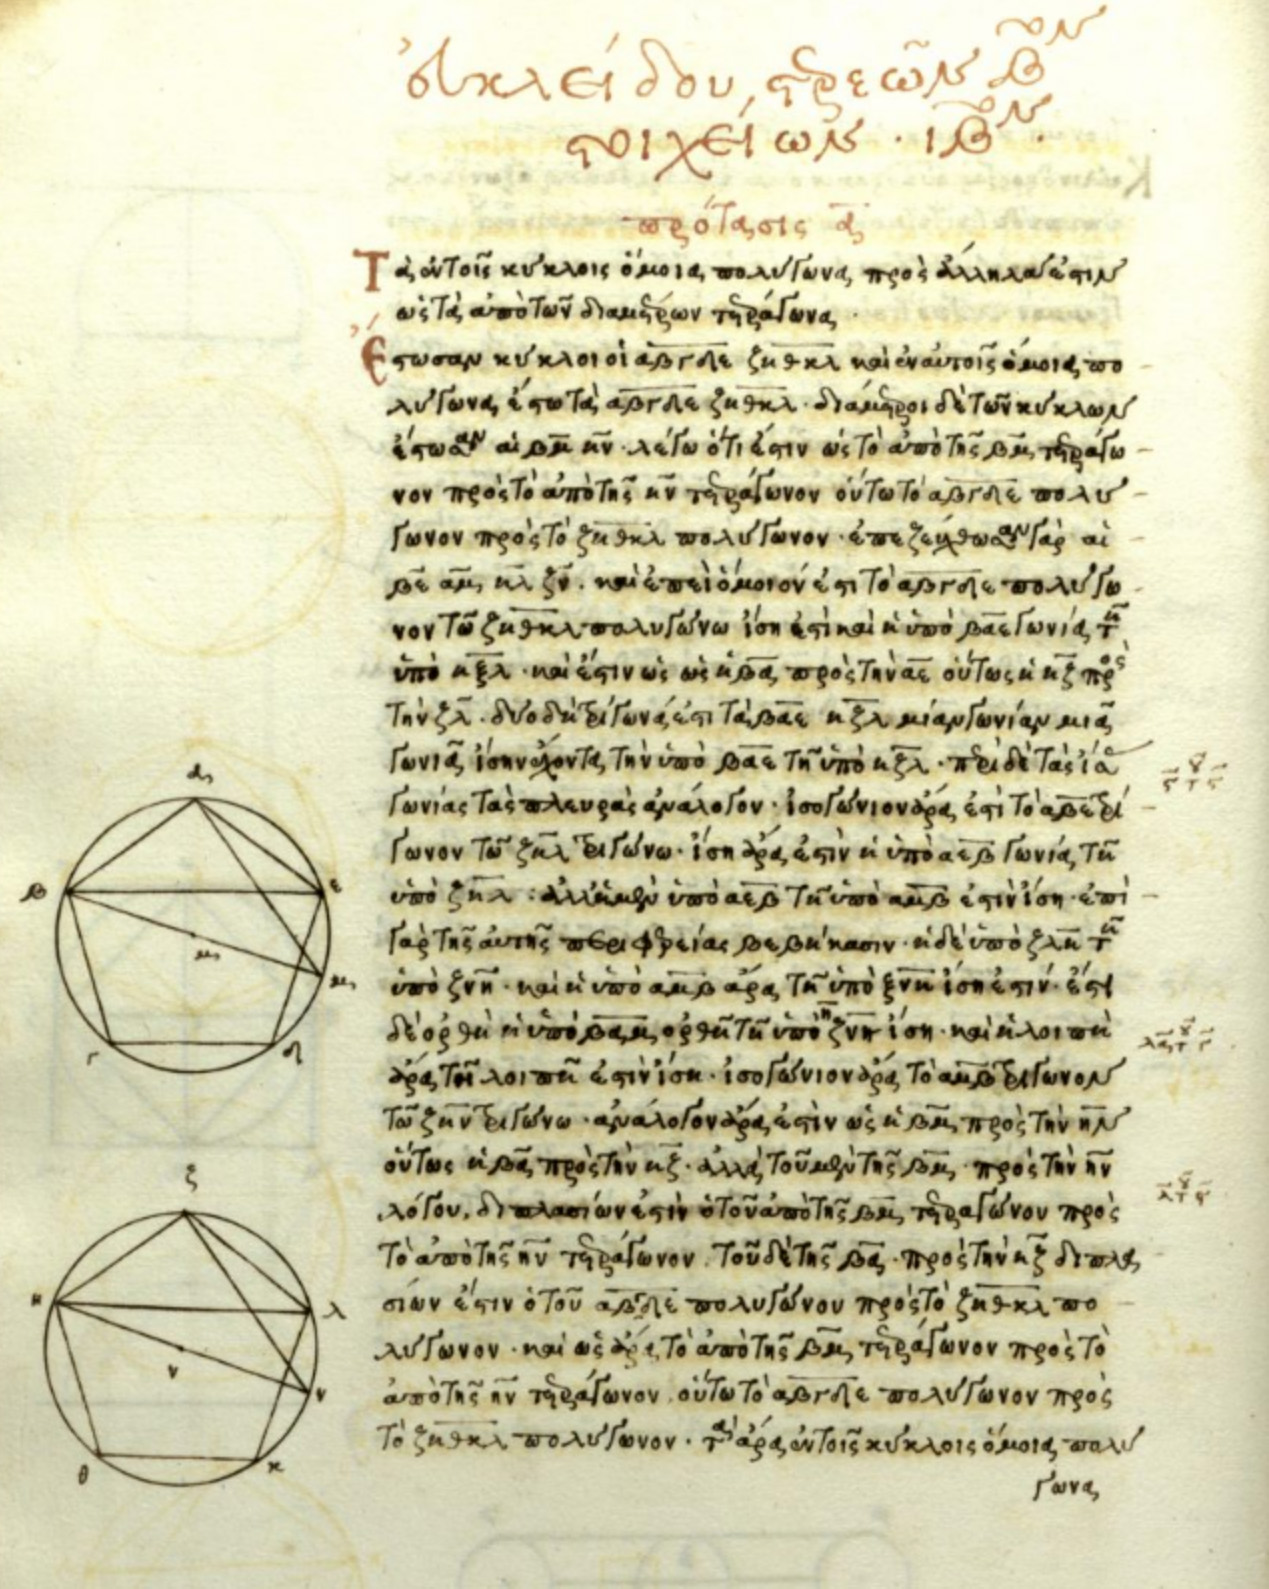 εὐκλείδου στερεῶν βον
στοιχείων · ιβον ·
πρότασις α
Τὰ ἐν τοῖς κύκλοις ὅμοια πολύγωνα πρὸς ἄλληλά ἐστιν
ὡς τὰ ἀπὸ τῶν διαμέτρων τετράγωνα ·
Ἔστωσαν κύκλοι οἱ αβγδε ζηθκλ καὶ ἐν αὐτοῖς ὅμοια πο
λύγωνα ἔστω τὰ αβγδε ζηθκλ · διάμετροι δὲ τῶν κύκλων
ἔστωσαν αἱ βμ ην · λέγω ὅτι ἐστὶν ὡς τὸ ἀπὸ τῆς βμ τετράγω
νον πρὸς τὸ ἀπὸ τῆς ην τετράγωνον οὕτω τὸ αβγδε πολύ
γωνον πρὸς τὸ ζηθκλ πολύγωνον · ἐπεζεύχθωσαν γὰρ αἱ
βε αμ ηλ ζν · καὶ ἐπεὶ ὅμοιόν ἐστι τὸ αβγδε πολύγω
νον τῶ ζηθκλ πολυγώνω ἴση ἐστὶ καὶ ἡ ὑπὸ βαε γωνία τῆ
ὑπὸ ηζλ · καὶ ἔστιν ὡς ὡς ἡ βα πρὸς τὴν αε οὕτως ἡ ηζ πρὸς
τὴν ζλ · δύο δὴ τρίγωνά ἐστι τὰ βαε ηζλ μίαν γωνίαν μιᾶ
γωνία ἴσην ἔχοντα τὴν ὑπὸ βαε τῆ ὑπὸ ηζλ · περὶ δὲ τὰς ἴσας
γωνίας τὰς πλευρὰς ἀνάλογον · ἰσογώνιον ἄρα ἐστὶ τὸ αβε τρί
γωνον τῶ ζηλ τριγώνω · ἴση ἄρα ἐστὶν ἡ ὑπὸ αεβ γωνία τῆ
ὑπὸ ζηλ · ἀλλ' ἡ μὲν ὑπὸ αεβ τῆ ὑπὸ αμβ ἐστὶν ἴση · ἐπὶ
γὰρ τῆς αὐτῆς περιφερείας βεβήκασιν · ἡ δὲ ὑπὸ ζλη τῆ
ὑπὸ ζνη · καὶ ἡ ὑπὸ αμβ ἄρα τῆ ὑπὸ ζνη ἴση ἐστίν · ἔστι
δὲ ὀρθὴ ἡ ὑπὸ βαμ ὀρθῆ τῆ ὑπὸ ζνη ἴση · καὶ ἡ λοιπὴ
ἄρα τῆ λοιπῆ ἐστὶν ἴση · ἰσογώνιον ἄρα τὸ αμβ τρίγωνον
τῶ ζην τριγώνω · ἀνάλογον ἄρα ἐστὶν ὡς ἡ βμ πρὸς τὴν ην
οὕτως ἡ βα πρὸς τὴν ηζ · ἀλλὰ τοῦ μὲν τῆς βμ πρὸς τὴν ην
λόγου διπλασίων ἐστὶν ὁ τοῦ ἀπὸ τῆς βμ τετραγώνου πρὸς
τὸ ἀπὸ τῆς ην τετράγωνον · τοῦ δὲ τῆς βα · πρὸς τὴν ηζ διπλα
σίων ἐστὶν ὁ τοῦ αβγδε πολυγώνου πρὸς τὸ ζηθκλ πο
λύγωνον · καὶ ὡς ἄρα τὸ ἀπὸ τῆς βμ τετράγωνον πρὸς τὸ
ἀπὸ τῆς ην τετράγωνον οὕτω τὸ αβγδε πολύγωνον πρὸς
τὸ ζηθκλ πολύγωνον · τὰ ἄρα ἐν τοῖς κύκλοις ὅμοια πολύ
γωνα
α
β
ε
μ
μ
γ
δ
ζ
η
λ
ν
ν
θ
κ